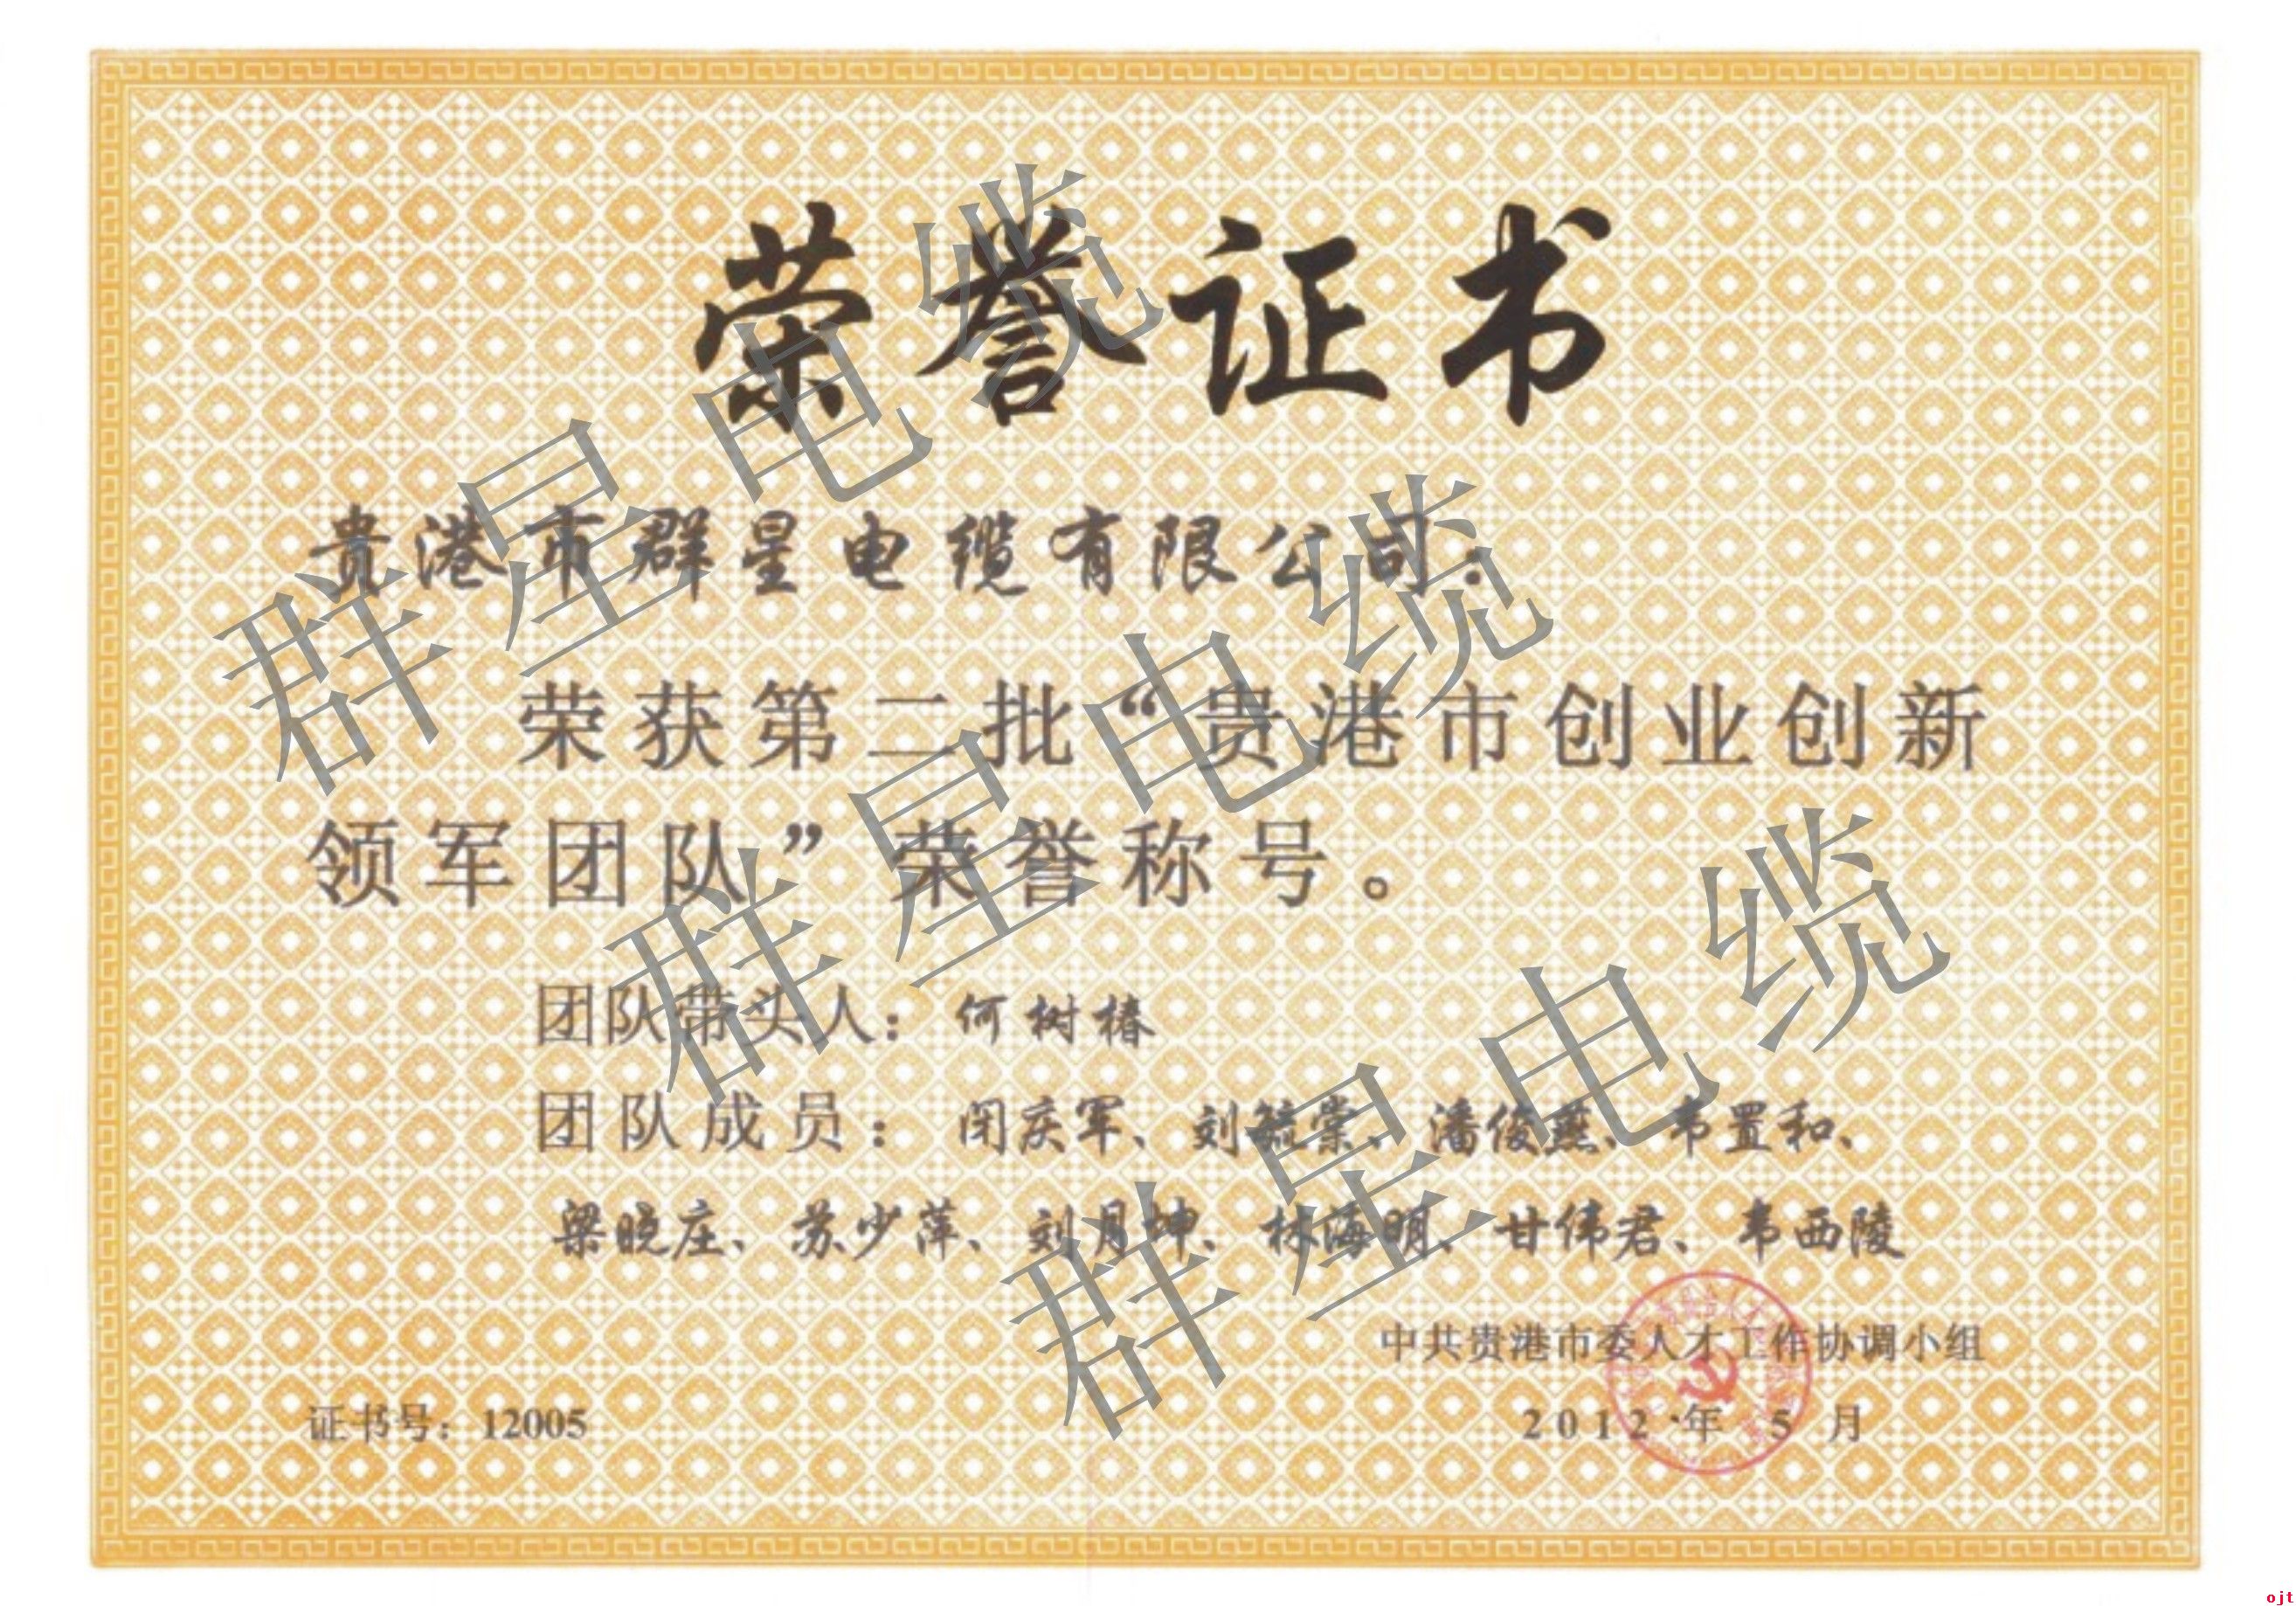 荣誉证书
贵港市群星电缆有限公司：
荣获第二批“贵港市创业创新
领军团队”荣誉称号。
团队带头人：何树椿
团队成员：闭庆军、刘毓崇、潘俊燕、韦置和、
梁晓庄、苏少萍、刘月坤、林海明、甘伟君、韦西陵
中共贵港市委人才工作协调小组
证书号：12005
2012年5月
群星电缆
群星电缆
群星电缆
ojt